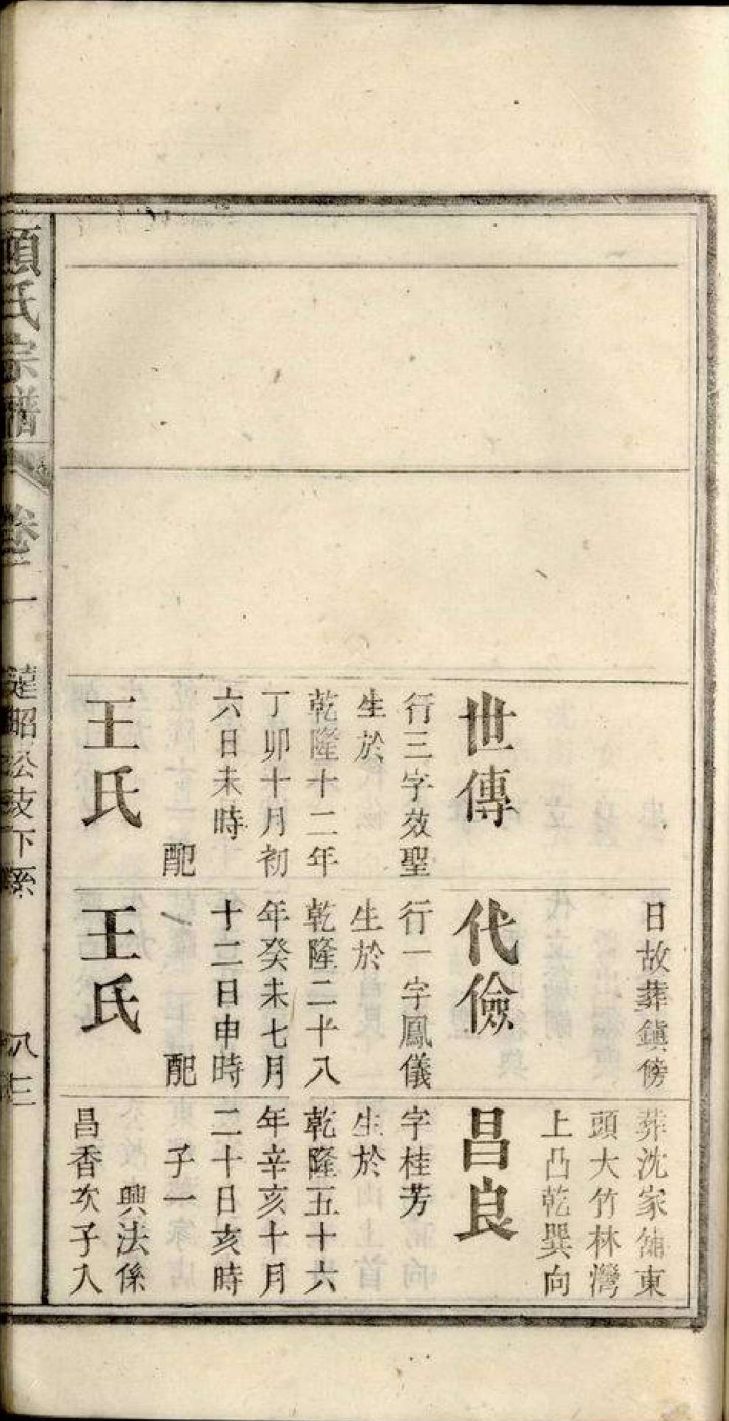 世傳
行三字效聖
生於
乾隆十二年
丁卯十月初
六日未時
配
王氏
日故葬鎮傍
代儉
行一字鳳儀
生於
乾隆二十八
年癸未七月
十二日申時
配
王氏
葬沈家舖東
頭大竹林灣
上凸乾巽向
昌良
字桂芳
生於
乾隆五十六
年辛亥十月
二十日亥時
子一
興法係
昌香次子入
氏宗譜
卷二一
昭公支下系
八三